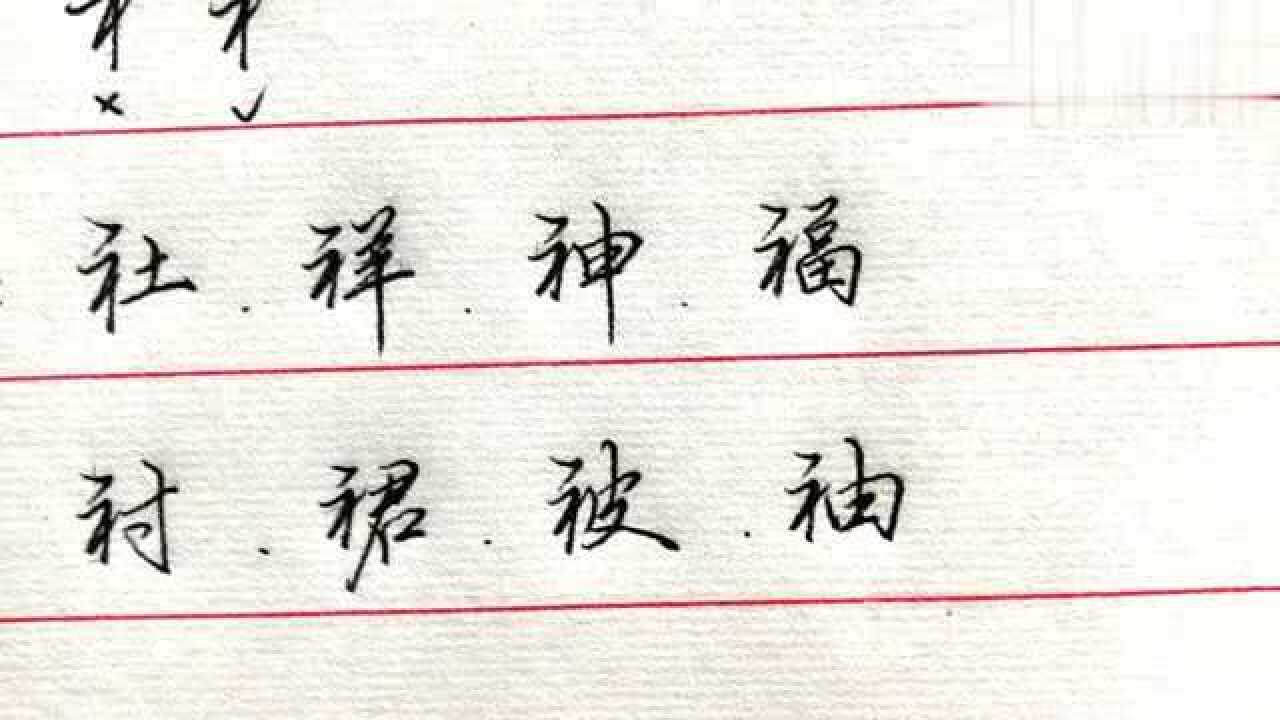 社.祥.神.福
衬.裙.被.袖